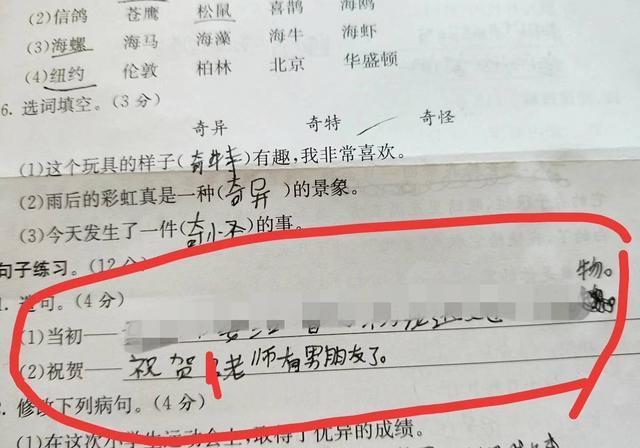 (2)信鸽 苍鹰 松鼠 喜鹊 海鸥
(3)海螺 海马 海藻 海牛 海虾
(4)纽约 伦敦 柏林 北京 华盛顿
6. 选词填空。(3 分)
奇异 奇特 奇怪
(1)这个玩具的样子(奇特)有趣,我非常喜欢。
(2)雨后的彩虹真是一种(奇异)的景象。
(3)今天发生了一件(奇怪)的事。
句子练习。(12分)
物。
1. 造句。(4分)
(1)当初——
(2)祝贺——祝贺 老师有男朋友了。
2. 修改下列病句。(4分)
(1)在这次小学生运动会上,取得了优异的成绩。